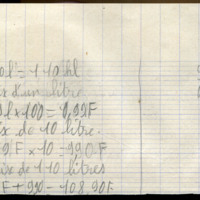 0l = 110 hl
d'un litre
l x 100 = 0,99F
ix de 10 litre.
9F x 10 = 9,90.F
ix de 110 litres
F + 990 = 108,90F